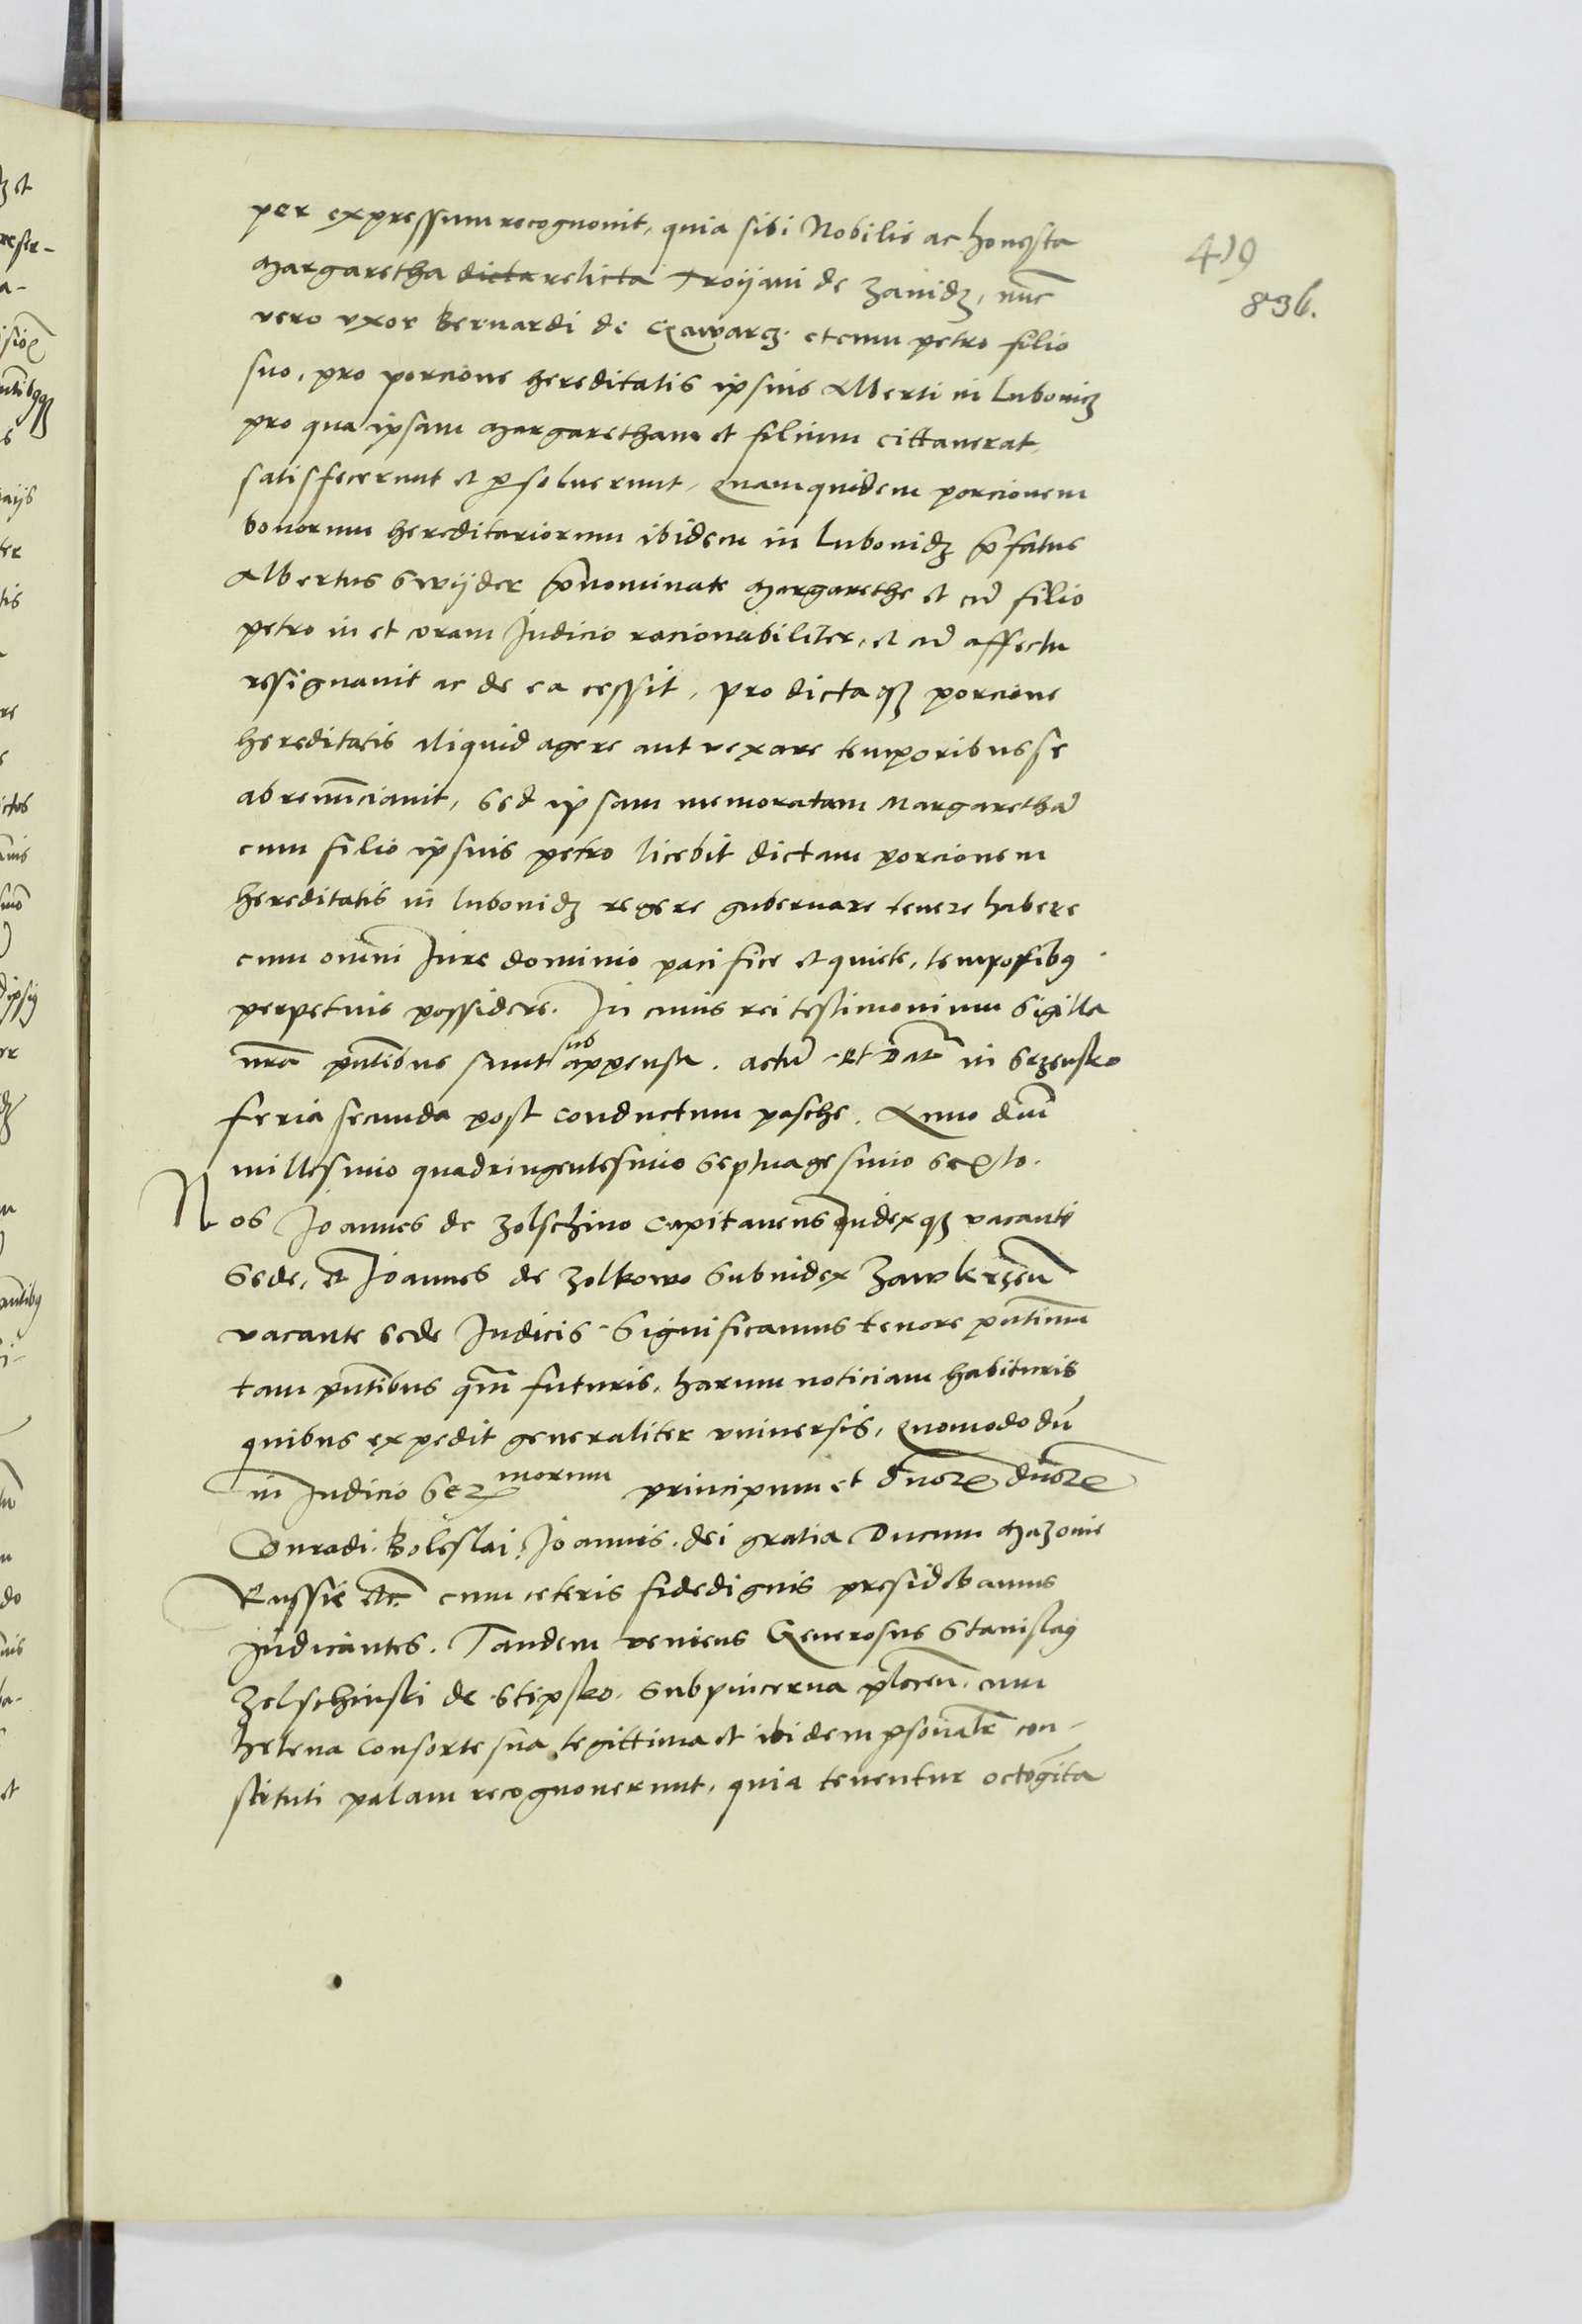 per expressum recognouit, quia sibi Nobilis ac honesta
419
Margaretha dicta relicta Troijani de Zanidz, nūc
836.
vero vxor Bernardi de Czawarcz et cum petro filio
suo, pro porcione hereditatis ipsius Alberti in Lubonicz
pro qua ipsam Margaretham et filium cittauerat,
satisfecerunt et psoluerunt, Quamquidem porcionem
bonorum hereditariorum ibidem in Lubonidz pfatus
Albertus Swijder pnominate Margarethe et cū filio
petro in et coram Judicio racionabiliter, et cū affectu
resignauit ac de ea cessit, pro dictaqz porcione
hereditatis aliquid agere aut vexare temporibus se
abrenūciauit, Sed ipsam memoratam Margarethā
cum filio ipsius petro licebit dictam porcionem
hereditatis in lubonidz regere gubernare tenere habere
cum omni Jure dominio pacifice et quiete, temporibq
perpetuis possidere. In cuius rei testimonium Sigilla
nrā pntibus sunt subappensa. Actū Et Dat in Srzensko
feria secunda post conductum pasche. Anno dni
millesimo quadringentesimo Septuagesimo Sexto.
Nos Joannes de Zolschino Capitaneus Judexqz vacante
Sede, et Joannes de Zolkowo Subiudex Zawkrzen
vacante sede Judicis Significamus tenore pntium
tam pntibus qm futuris, harum noticiam habituris
quibus expedit generaliter vniuersis, Quomodo dū
in Judicio Ser morum principum et dnor dnor
Conradi. Boleslai. Joannis. dei gratia Ducum Mazouie
Russie etc. cum ceteris fidedignis presidebamus
Judicantes. Tandem veniens Generosus Stanislaq
Zelschinski de Stipsko. Subpincerna plocen. cum
helena consorte sua legittima et ibidem psonalr con-
stituti palam recognouerunt, quia tenentur octogīta